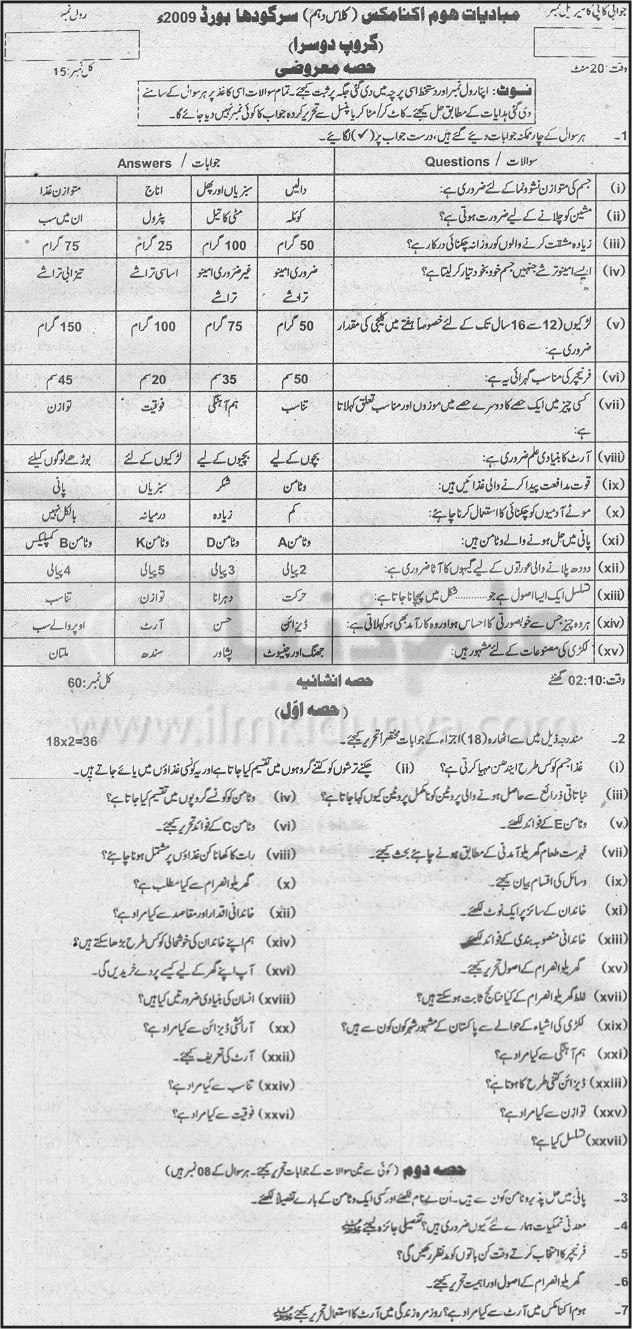 جوابی کاپی کا سیریل نمبر
مبادیات ھوم اکنامکس (کلاس دہم) سرگودھا بورڈ 2009ء
رول نمبر
(گروپ دوسرا)
وقت: 20 منٹ
حصہ معروضی
کل نمبر: 15
نوٹ: اپنا رول نمبر اور دستخط اسی پرچہ میں دی گئی جگہ پر ثبت کیجئے۔ تمام سوالات اسی کاغذ پر ہر سوال کے سامنے
دی گئی ہدایات کے مطابق حل کیجئے۔ کاٹ کر/مٹا کر یا پنسل سے تحریر کردہ جواب کا کوئی نمبر نہیں دیا جائے گا۔
1۔ ہر سوال کے چار ممکنہ جوابات دیئے گئے ہیں، درست جواب پر (✓) لگائیے۔
سوالات / Questions جوابات / Answers
(i) جسم کی متوازن نشوونما کے لئے ضروری ہے: دالیں سبزیاں اور پھل اناج متوازن غذا
(ii) مشین کو چلانے کے لیے ضرورت ہوتی ہے؟ کوئلہ مٹی کا تیل پٹرول ان میں سب
(iii) زیادہ مشقت کرنے والوں کو روزانہ چکنائی درکار ہے؟ 50 گرام 100 گرام 25 گرام 75 گرام
(iv) ایسے امینو ترشے جنہیں جسم خود بخود تیار کر لیتا ہے؟ ضروری امینو ترشے غیر ضروری امینو ترشے اساسی تراشے تیزابی تراشے
(v) لڑکیوں (12 سے 16 سال تک کے لئے خصوصاً ہفتے میں کلیجی کی مقدار ضروری ہے: 50 گرام 75 گرام 100 گرام 150 گرام
(vi) فرنیچر کی مناسب گہرائی یہ ہے: 50 سم 35 سم 20 سم 45 سم
(vii) کسی چیز میں ایک حصے کا دوسرے حصے میں موزوں اور مناسب تعلق کہلاتا ہے: تناسب ہم آہنگی فوقیت توازن
(viii) آرٹ کا بنیادی علم ضروری ہے: بچوں کے لیے بچیوں کے لیے لڑکیوں کے لئے بوڑھے لوگوں کیلئے
(ix) قوت مدافعت پیدا کرنے والی غذائیں ہیں: وٹامن شکر سبزیاں پانی
(x) موٹے آدمیوں کو چکنائی کا استعمال کرنا چاہئے: کم زیادہ درمیانہ بالکل نہیں
(xi) پانی میں حل ہونے والے وٹامن ہیں: وٹامن A وٹامن D وٹامن K وٹامن B کمپلیکس
(xii) دودھ پلانے والی عورتوں کے لیے گیہوں کا آٹا ضروری ہے: 2 پیالی 3 پیالی 5 پیالی 4 پیالی
(xiii) تسلسل ایک ایسا اصول ہے جو ........... شکل میں پہچانا جاتا ہے: حرکت دہرانا توازن تناسب
(xiv) ہر وہ چیز جس سے خوبصورتی کا احساس ہو اور وہ کار آمد بھی ہو کہلاتی ہے: ڈیزائن حسن آرٹ اوپر والے سب
(xv) لکڑی کی مصنوعات کے لئے مشہور ہیں: جھنگ اور چنیوٹ پشاور سندھ ملتان
وقت: 02:10 گھنٹے
حصہ انشائیہ
کل نمبر: 60
(حصہ اوّل)
علم کی دنیا
www.ilmkidunya.com
2۔ مندرجہ ذیل میں سے اٹھارہ (18) اجزاء کے جوابات مختصراً تحریر کیجئے۔ 18x2=36
(i) غذا جسم کو کس طرح ایندھن مہیا کرتی ہے؟ (ii) چکنے ترشوں کو کتنے گروہوں میں تقسیم کیا جاتا ہے اور یہ کونسی غذاؤں میں پائے جاتے ہیں۔
(iii) نباتاتی ذرائع سے حاصل ہونے والی پروٹین کو نامکمل پروٹین کیوں کہا جاتا ہے؟ (iv) وٹامن کو کونسے گروپوں میں تقسیم کیا جاتا ہے؟
(v) وٹامن E کے فوائد لکھئے۔ (vi) وٹامن C کے فوائد تحریر کیجئے۔
(vii) فہرست طعام گھریلو آمدنی کے مطابق ہونے چاہئے بحث کیجئے۔ (viii) رات کا کھانا کن غذاؤں پر مشتمل ہونا چاہئے؟
(ix) وسائل کی اقسام بیان کیجئے۔ (x) گھریلو انصرام سے کیا مطلب ہے؟
(xi) خاندان کے سائز پر ایک نوٹ لکھئے۔ (xii) خاندانی اقدار اور مقاصد سے کیا مراد ہے؟
(xiii) خاندانی منصوبہ بندی کے فوائد لکھئے۔ (xiv) ہم اپنے خاندان کی خوشحالی کو کس طرح بڑھا سکتے ہیں؟
(xv) گھریلو انصرام کے اصول تحریر کیجئے۔ (xvi) آپ اپنے گھر کے لیے کیسے پردے خریدیں گی۔
(xvii) غلط گھریلو انصرام کے کیا نتائج ثابت ہو سکتے ہیں؟ (xviii) انسان کی بنیادی ضرورتیں کیا ہیں؟
(xix) لکڑی کی اشیاء کے حوالے سے پاکستان کے مشہور شہر کون کون سے ہیں؟ (xx) آرائشی ڈیزائن سے کیا مراد ہے؟
(xxi) ہم آہنگی سے کیا مراد ہے؟ (xxii) آرٹ کی تعریف کیجئے۔
(xxiii) ڈیزائن کتنی طرح کا ہوتا ہے؟ (xxiv) تناسب سے کیا مراد ہے؟
(xxv) توازن سے کیا مراد ہے؟ (xxvi) فوقیت سے کیا مراد ہے؟
(xxvii) تسلسل کیا ہے؟
حصہ دوم (کوئی سے تین سوالات کے جوابات تحریر کیجئے۔ ہر سوال کے 08 نمبر ہیں)
3۔ پانی میں حل پذیر وٹامن کون سے ہیں۔ اُن کے نام لکھئے اور کسی ایک وٹامن کے بارے تفصیلاً لکھئے۔
4۔ معدنی نمکیات ہمارے لئے کیوں ضروری ہیں؟ تفصیلی جائزہ لیجئے
5۔ فرنیچر کا انتخاب کرتے وقت کن باتوں کو مدنظر رکھیں گی؟
6۔ گھریلو انصرام کے اصول اور اہمیت تحریر کیجئے۔
7۔ ہوم اکنامکس میں آرٹ سے کیا مراد ہے؟ روزمرہ زندگی میں آرٹ کا استعمال تحریر کیجئے